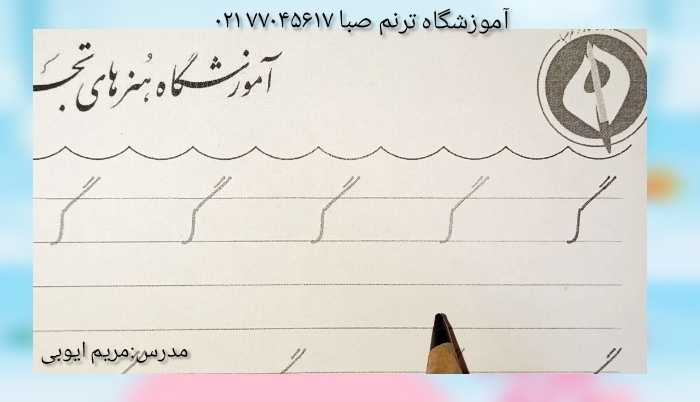 آموزشگاه ترنم صبا ۰۲۱۷۷۰۴۵۶۱۷
آموزشگاه هنرهای
گ گ گ گ گ
مدرس:مریم ایوبی